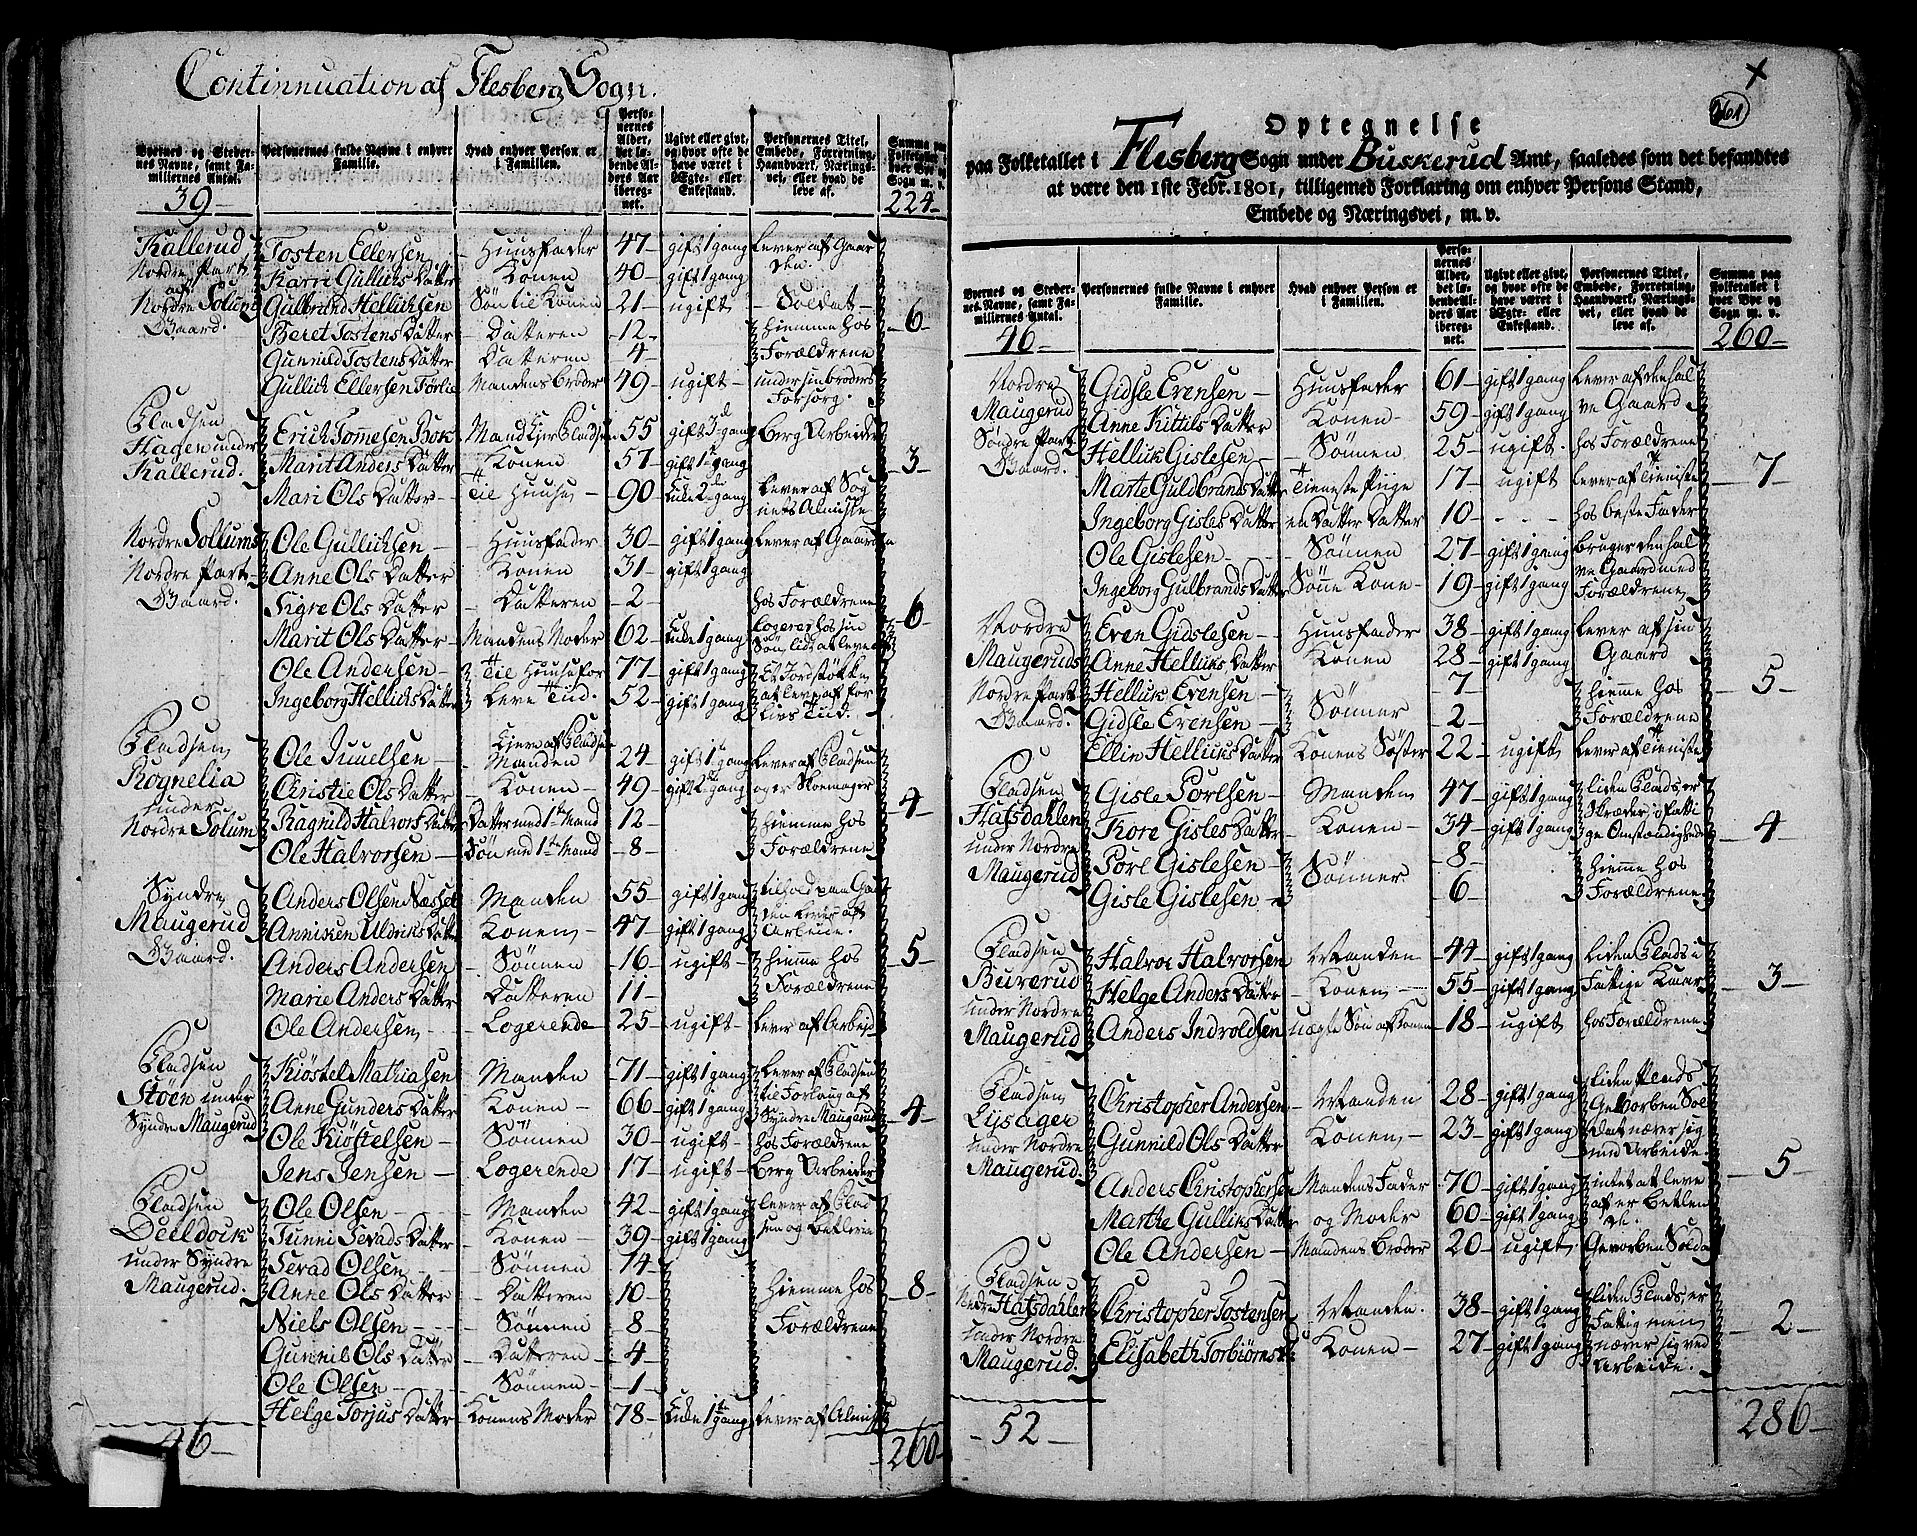 Continnuation af Flesberg Sogn.
Byernes og Stedernes Navne, samt Familiernes Antal. | Personernes fulde Navne i enhver Familie. | Hvad enhver Person er i Familien. | Personernes Alder, det løbende Alders Aar iberegnet. | Ugivt eller givt, og hvor ofte de have været i Ægte- eller Enkestand. | Personernes Titel, Embede, Forretning, Haandværk, Næringsvei, eller hvad de leve af. | Summa paa Folketallet i hver Bye og Sogn m. v.
39 | 224
Kallerud Nordre Part af Nordre Solums Gaard.
Tosten Ellersen | Huusfader | 47 | gift 1 gang | Lever af Gaarden.
Karri Gulliks Datter | Konen | 40 | gift 1 gang
Gulbrand Helliksen | Søn til Konen | 21 | ugift | Soldat | 6
Beret Tostens Datter | Datteren | 12 | hiemme hos
Gunnild Tostens Datter | Datteren | 4 | Forældrene
Gullick Ellersen | Mandens Broder | 49 | ugift | under sin Broders Forsorg.
Pladsen Hagen under Kallerud.
Erich Tomesen | 55 | gift 3 gang | Berg Arbeider
Marit Anders Datter | Konen | 57 | gift 1 gang | 3
Mari Ols Datter | Til Huuse | 90 | Enke 2 gang | Lever af Sognets Almisse
Nordre Sollums Nordre Part Gaard.
Ole Gulliksen | Huusfader | 30 | gift 1 gang | Lever af Gaarden
Anne Ols Datter | Konen | 31 | gift 1 gang
Sigre Ols Datter | Datteren | 2 | hos Forældrene | 6
Marit Ols Datter | Mandens Moder | 62 | Enke 1 gang | Logerer hos sin Søn, lidt at leve
Ole Andersen | Til Huuse for | 77 | gift 1 gang | Et Jordstøkke
Ingeborg Helliks Datter | leve Tiid. | 52 | gift 1 gang | at leve af for Livs Tiid.
Pladsen Rognelia under Nordre Solum
Ole Juuelsen | Manden | 24 | gift 1 gang | Lever af Pladsen
Christie Ols Datter | Konen | 49 | gift 2 gang | og er Skomager
Ragnild Halvors Datter | Datter med 1ste Mand | 12 | hiemme hos | 4
Ole Halvorsen | Søn med 1ste Mand | 8 | Forældrene
Syndre Maugerud Gaard.
Anders Olsen Næsset | Manden | 55 | gift 1 gang
Anniken Uldriks Datter | Konen | 47 | gift 1 gang | Arbeide.
Anders Andersen | Sønnen | 16 | ugift | hiemme hos | 5
Marie Anders Datter | Datteren | 11 | Forældrene
Ole Andersen | Logerende | 25 | ugift | Lever af Arbejd
Pladsen Støen under Syndre Maugerud
Kiøstel Mathiasen | Manden | 71 | gift 1 gang | Lever af Pladsen
Anne Gunders Datter | Konen | 66 | gift 1 gang | Syndre Maugerud
Ole Kiøstelsen | Sønnen | 30 | ugift | hos Forældrene | 4
Jens Jensen | Logerende | 17 | ugift | Berg Arbeider
Pladsen Deildock under Syndre Maugerud.
Ole Olsen | Manden | 42 | gift 1 gang | Lever af Pladsen og Betlerie
Tunni Sevads Datter | Konen | 39 | gift 1 gang
Sevad Olsen | Sønnen | 14
Anne Ols Datter | Datteren | 10 | hiemme hos | 8
Niels Olsen | Sønnen | 8 | Forældrene
Gunnil Ols Datter | Datteren | 4
Ole Olsen | Sønnen | 1
Helge Torjus Datter | Konens Moder | 78 | Enke 1 gang | Lever af Almisse
46 | 260
261
Optegnelse
paa Folketallet i Flesberg Sogn under Buskerud Amt, saaledes som det befandtes
at være den 1ste Febr. 1801, tilligemed Forklaring om enhver Persons Stand,
Embede og Næringsvei, m. v.
Byernes og Stedernes Navne, samt Familiernes Antal. | Personernes fulde Navne i enhver Familie. | Hvad enhver Person er i Familien. | Personernes Alder, det løbende Alders Aar iberegnet. | Ugivt eller givt, og hvor ofte de have været i Ægte- eller Enkestand. | Personernes Titel, Embede, Forretning, Haandværk, Næringsvei, eller hvad de leve af. | Summa paa Folketallet i hver Bye og Sogn m. v.
46 | 260
Nordre Maugerud Søndre Part Gaard.
Gidsle Evensen | Huusfader | 61 | gift 1 gang | Lever af den halve Gaard
Anne Kittils Datter | Konen | 59 | gift 1 gang
Hellik Gislesen | Sønnen | 25 | ugift | hos Forældrene
Marte Guldbrands Datter | Tieneste Piige | 17 | ugift | Lever af Tieniste | 7
Ingeborg Gisles Datter | en Datter Datter | 10 | hos beste Fader
Ole Gislesen | Sønnen | 27 | gift 1 gang | bruger den halve Gaard med
Ingeborg Gulbrands Datter | Sønne Kone | 19 | gift 1 gang | Forældrene
Nordre Mauгeruds Nordre Part Gaard.
Even Gidslesen | Huusfader | 38 | gift 1 gang | Lever af sin Gaard
Anne Helliks Datter | Konen | 28 | gift 1 gang
Hellik Evensen | Sønner | 7 | hiemme hos | 5
Gidsle Evensen | 2 | Forældrene
Ellin Helliks Datter | Konens Søster | 22 | ugift | Lever af Tieniste
Pladsen Hafsdahlen under Nordre Maugerud
Gisle Pørlsen | Manden | 47 | gift 1 gang | liden Plads, er Skræder, i fattige Omstændigheder
Tore Gisles Datter | Konen | 34 | gift 1 gang | 4
Pørl Gislesen | Sønner | 8 | hiemme hos
Gisle Gislesen | 6 | Forældrene
Pladsen Buverud under Nordre Maugerud
Halvor Halvorsen | Manden | 44 | gift 1 gang | liden Plads i
Helge Anders Datter | Konen | 55 | gift 1 gang | fattige Kaar | 3
Anders Indvoldsen | uægte Søn af Konen | 18 | ugift | hos Forældrene
Pladsen Lysager under Nordre Maugerud.
Christopher Andersen | Manden | 28 | gift 1 gang | liden Plads Gevorben Soldat nærer sig med Arbeide.
Gunnild Ols Datter | Konen | 23 | gift 1 gang | 5
Anders Christophersen | Mandens Fader | 70 | gift 1 gang | intet at leve af er Betlende.
Marthe Gulliks Datter | og Moder | 60 | gift 1 gang
Ole Andersen | Mandens Broder | 20 | ugift | Gevorben Soldat
Pladsen Nedre Hafsdahlen under Nordre Maugerud.
Christopher Tostensen | Manden | 38 | gift 1 gang | liden Plads, er fattig men
Elisabeth Torbiørns Dr | Konen | 27 | gift 1 gang | nærer sig ved Arbeide. | 2
52 | 286